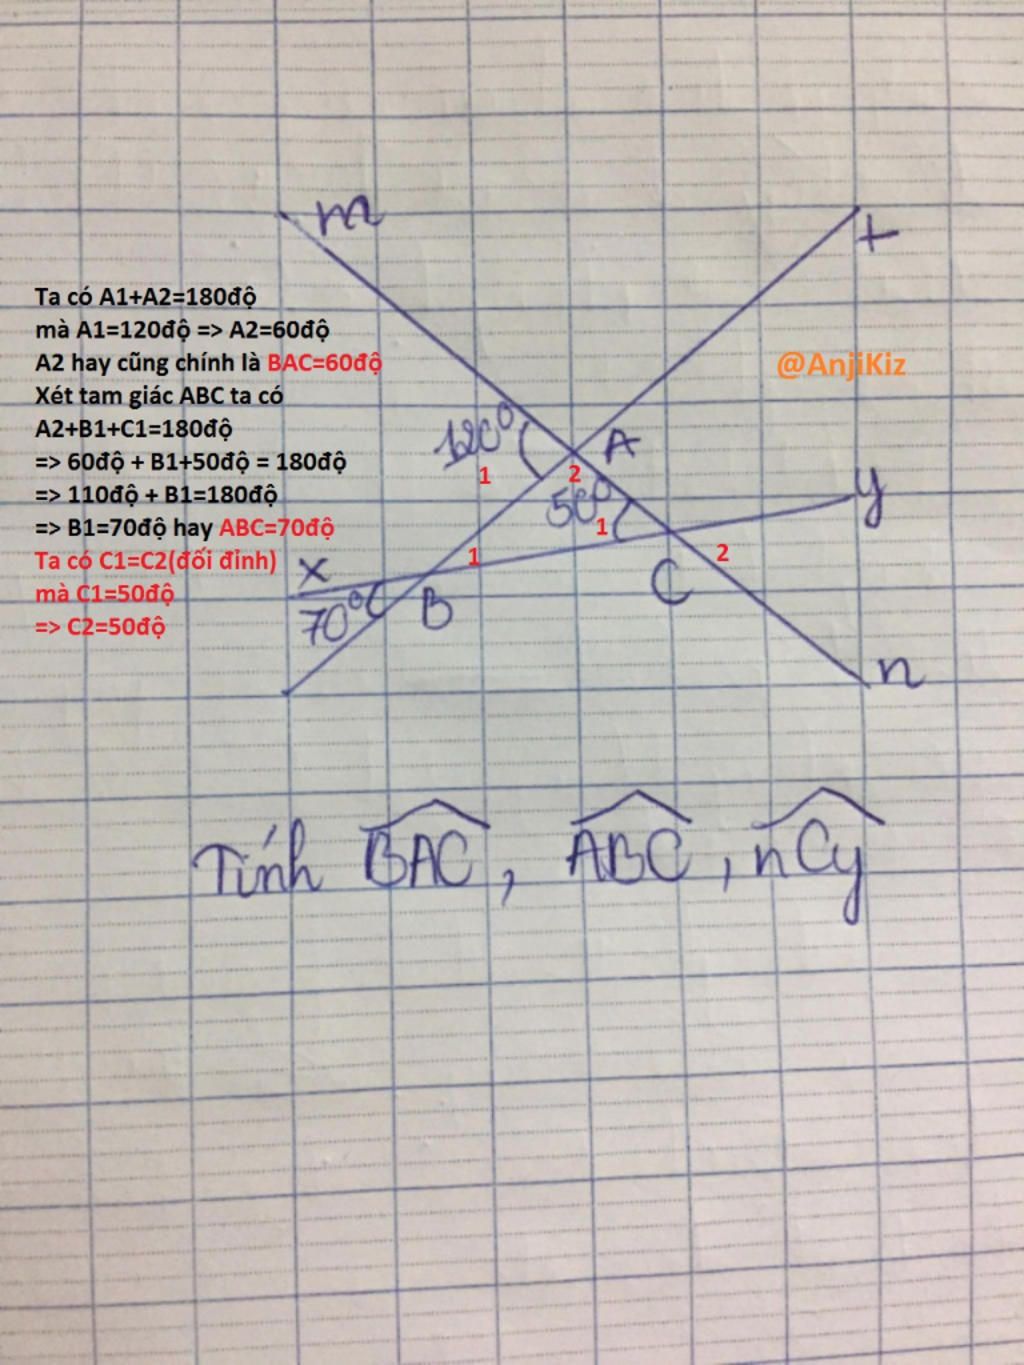 m
t
Ta có A1+A2=180độ
mà A1=120độ => A2=60độ
A2 hay cũng chính là BAC=60độ
Xét tam giác ABC ta có
A2+B1+C1=180độ
=> 60độ + B1+50độ = 180độ
=> 110độ + B1=180độ
=> B1=70độ hay ABC=70độ
Ta có C1=C2(đối đỉnh)
mà C1=50độ
=> C2=50độ
@AnjiKiz
120° A
1 2
50° y
1 2
x 1
70° B C
n
Tính BAC, ABC, nCy